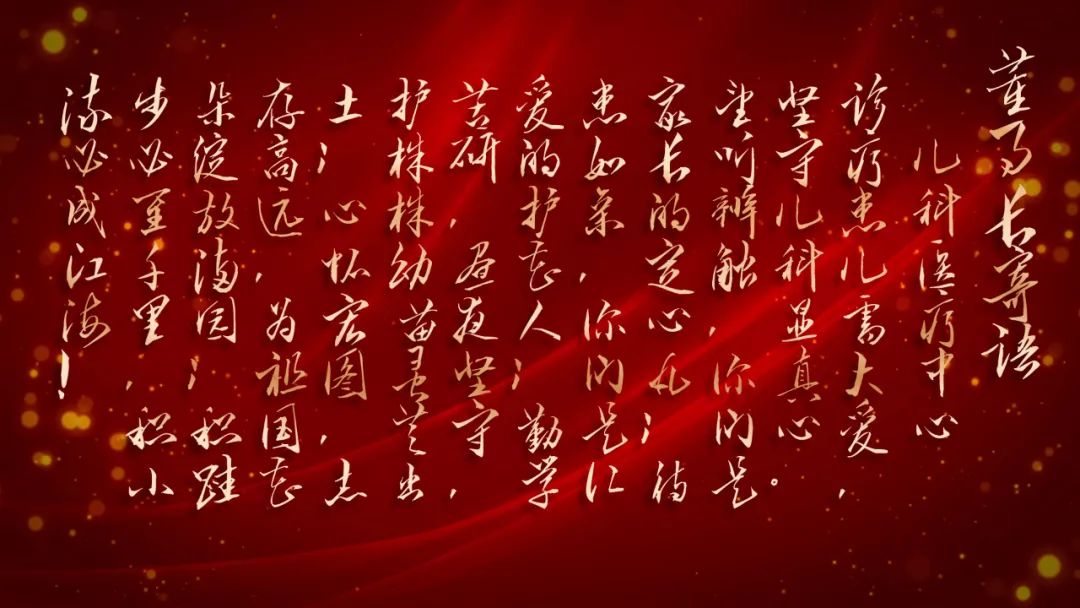 董事长寄语
儿科医疗中心
诊疗患儿需大爱，
坚守儿科显真心。
望听辨触，你们是
家长的定心丸；待
患如亲，你们是仁
爱的护花人；勤学
苦研，昼夜坚守，
护株株幼苗芒出
土；心怀宏图，志
存高远，为祖国花
朵绽放满园；积跬
步必至千里，积小
流必成江海！